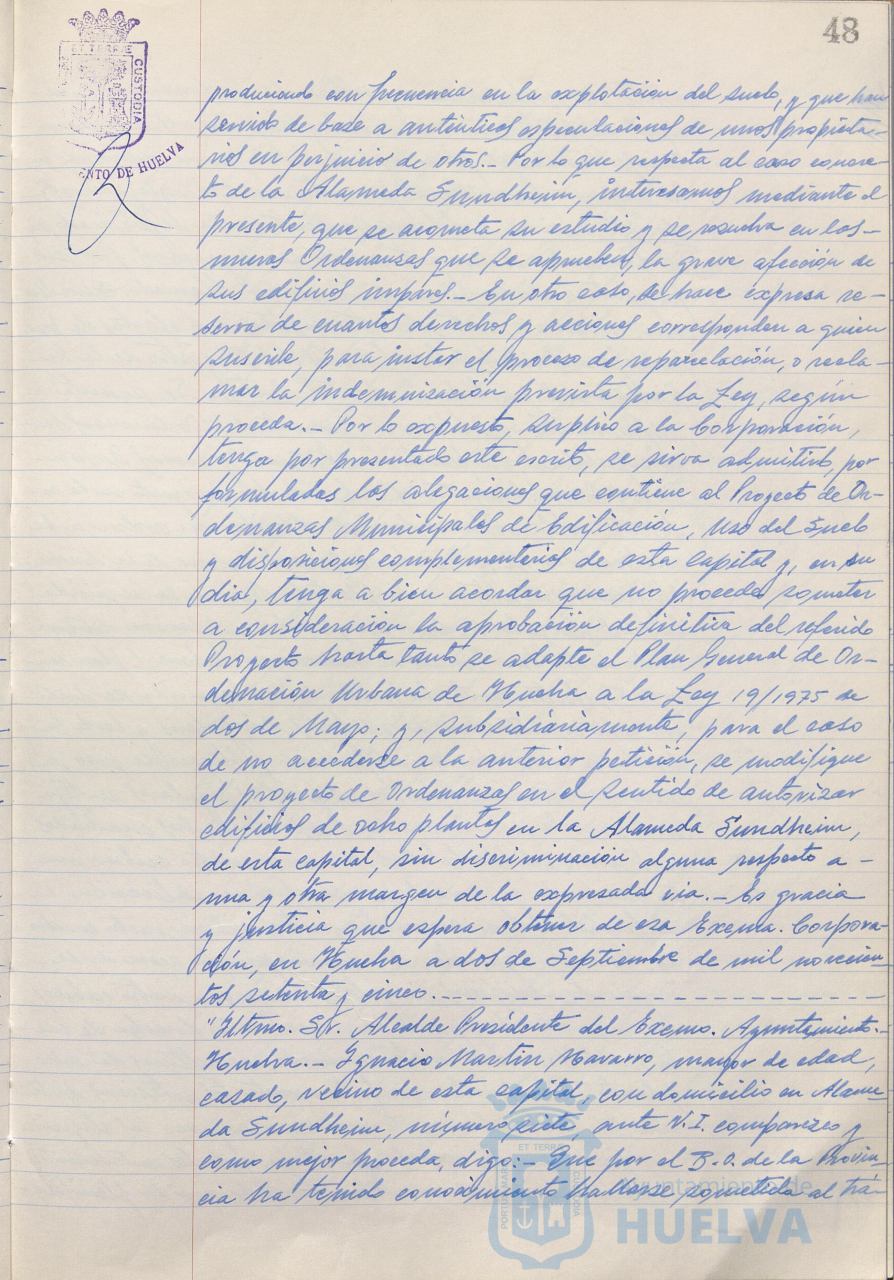 48
ET TERRÆ
CUSTODIA
NTO DE HUELVA
produciendo con frecuencia en la explotación del suelo, y que han
servido de base a auténticas especulaciones de unos propieta-
rios en perjuicio de otros.- Por lo que respecta al caso concre-
to de la Alameda Sundheim, interesamos mediante el
presente, que se acometa su estudio y se resuelva en las-
nuevas Ordenanzas que se aprueben, la grave afección de
sus edificios impares.- En otro caso, se hace expresa re-
serva de cuantos derechos y acciones corresponden a quien
suscribe, para instar el proceso de reparcelación, o recla-
mar la indemnización prevista por la Ley, según
proceda.- Por lo expuesto, suplico a la Corporación,
tenga por presentado este escrito, se sirva admitirlo, por
formuladas las alegaciones que contiene al Proyecto de Or-
denanzas Municipales de Edificación, Uso del Suelo
y disposiciones complementarias de esta capital y, en su
día, tenga a bien acordar que no procede someter
a consideración la aprobación definitiva del referido
Proyecto hasta tanto se adapte el Plan General de Or-
denación Urbana de Huelva a la Ley 19/1975 de
dos de Mayo; y, subsidiariamente, para el caso
de no accederse a la anterior petición, se modifique
el proyecto de Ordenanzas en el sentido de autorizar
edificios de ocho plantas en la Alameda Sundheim,
de esta capital, sin discriminación alguna respecto a -
una y otra margen de la expresada via.- Es gracia
y justicia que espera obtener de esa Excma. Corpora-
ción, en Huelva a dos de Septiembre de mil novecien-
tos setenta y cinco.------------------------------
"Iltmo. Sr. Alcalde Presidente del Excmo. Ayuntamiento.
Huelva.- Ignacio Martin Navarro, mayor de edad,
casado, vecino de esta capital, con domicilio en Alame-
da Sundheim, número siete, ante V.I. comparezco y
como mejor proceda, digo:- Que por el B.O. de la Provin-
cia ha tenido conocimiento hallarse sometida al trá-
ET TERRÆ
Ayuntamiento de
HUELVA